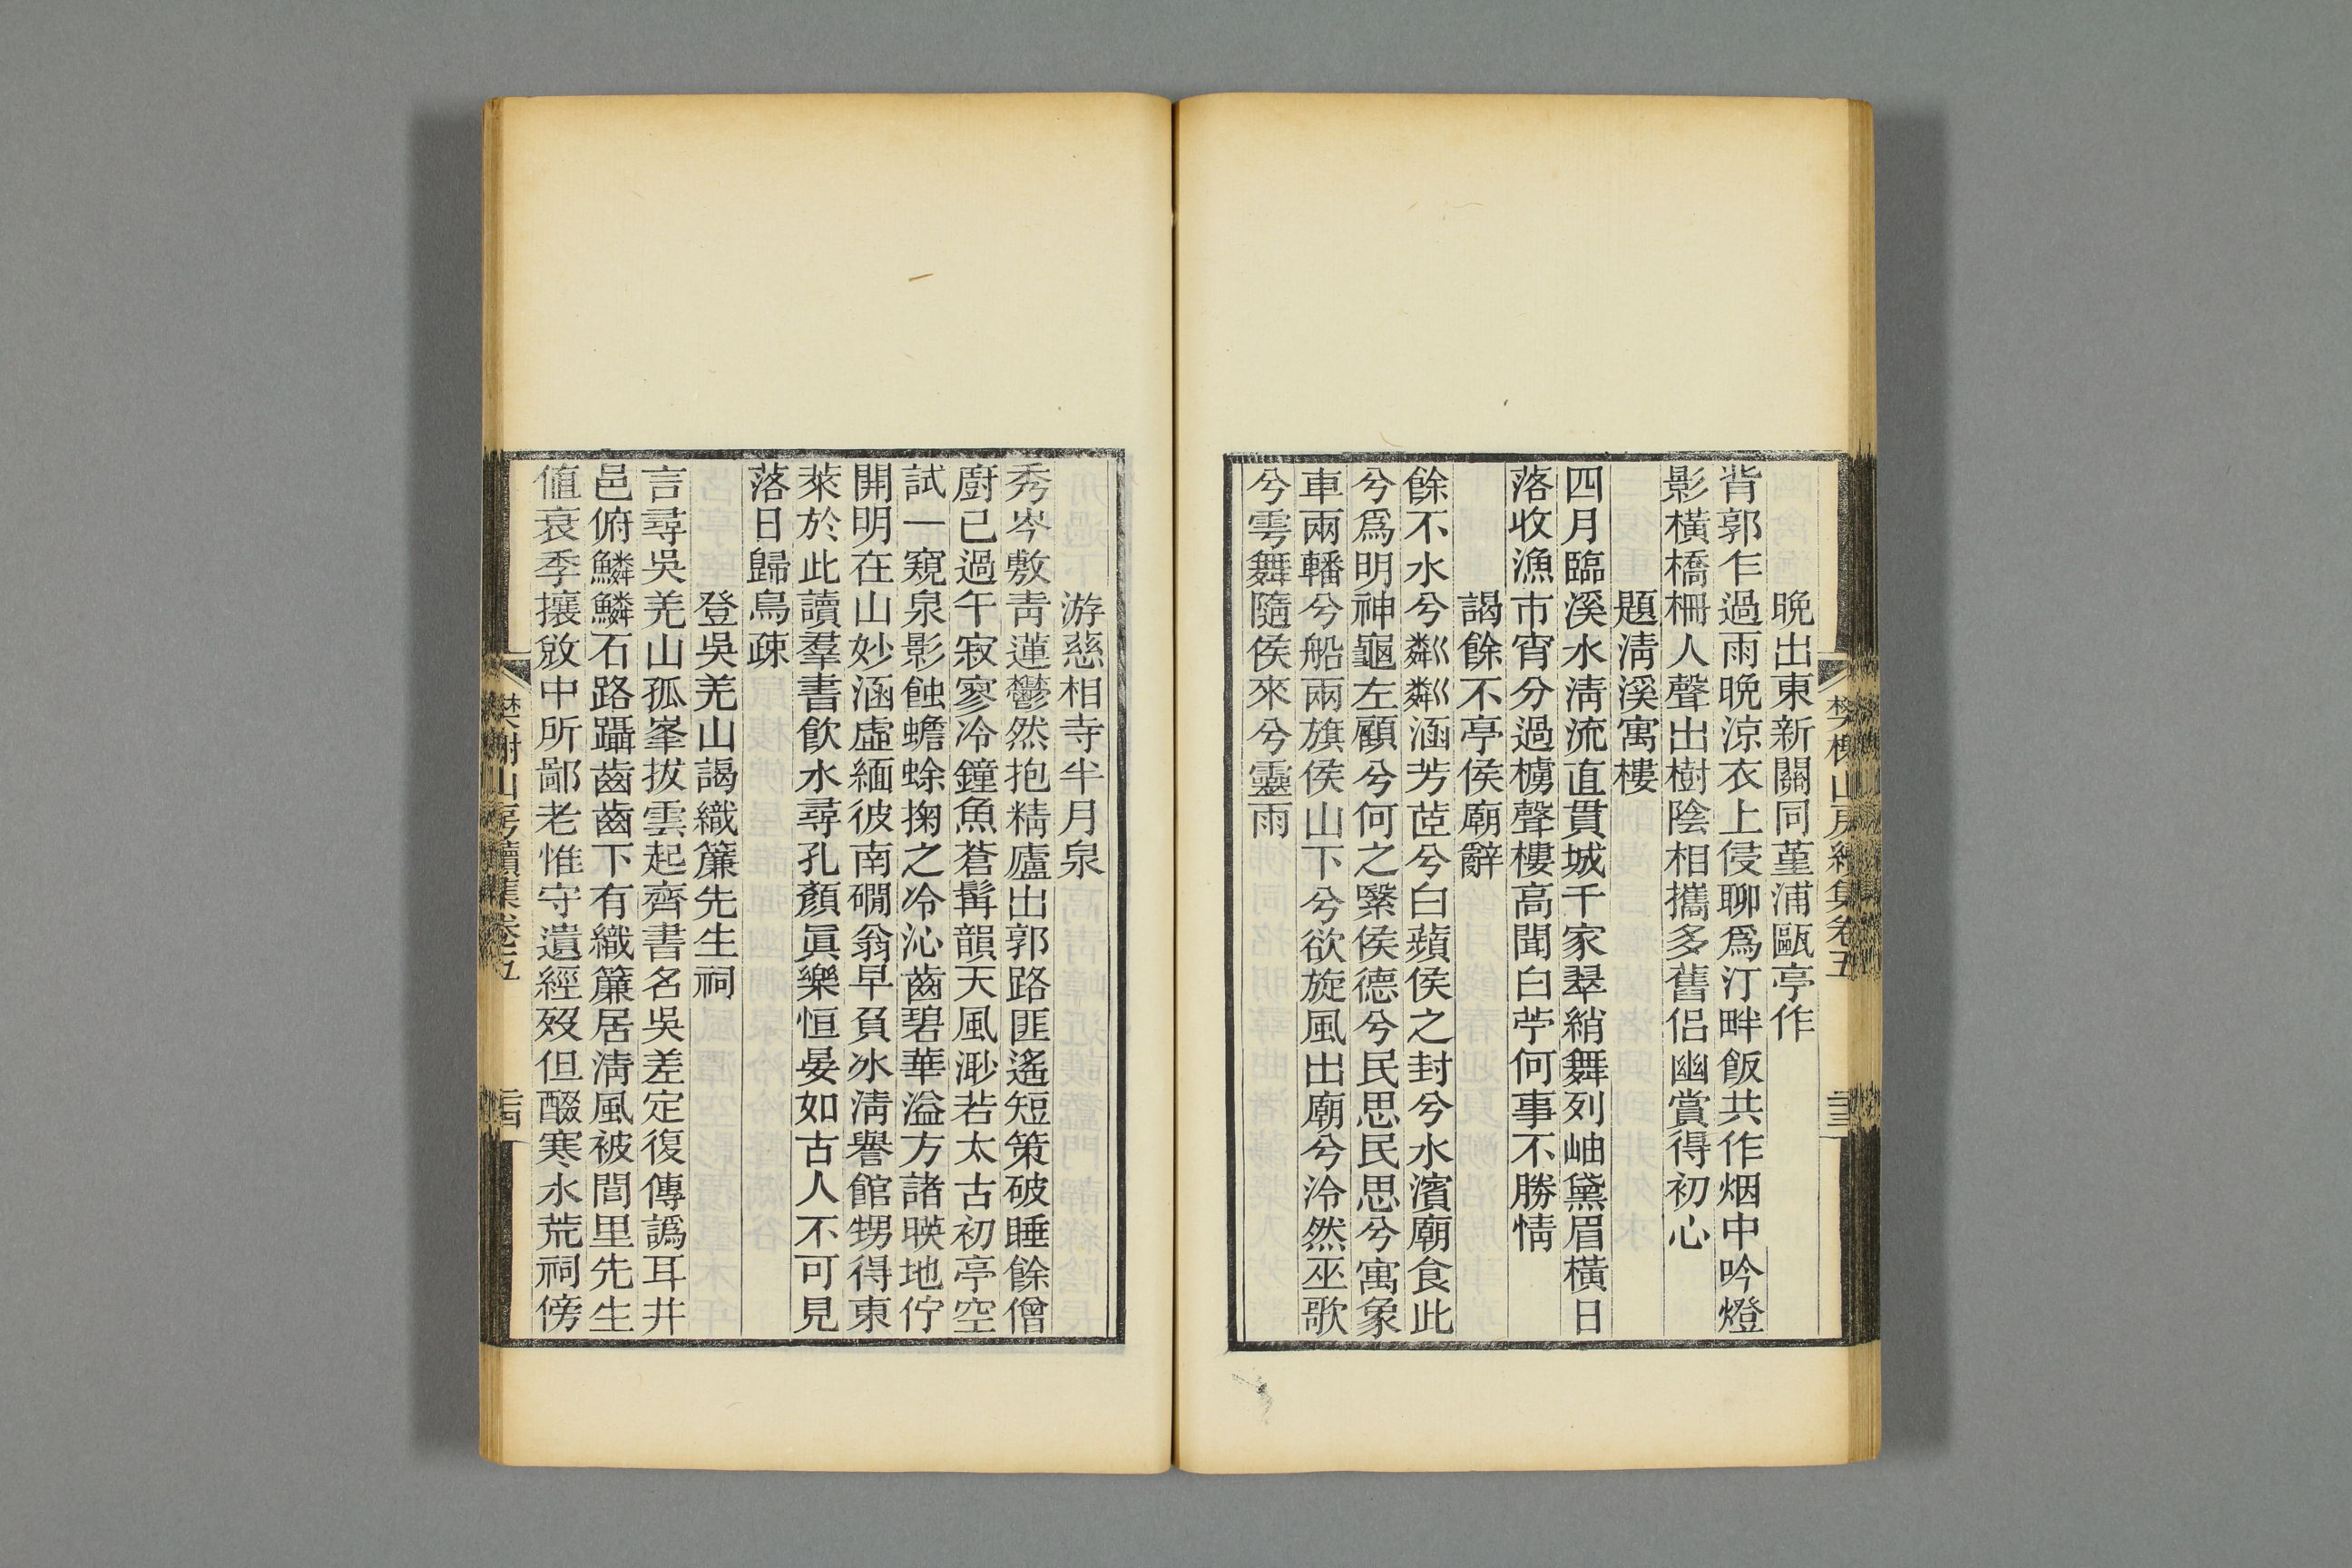 晚出東新關同堇浦甌亭作
背郭乍過雨晚涼衣上侵聊爲汀畔飯共作烟中吟燈
影橫橋柵人聲出樹陰相攜多舊侶幽賞得初心
題淸溪寓樓
四月臨溪水淸流直貫城千家翠綃舞列岫黛眉橫日
落收漁市宵分過櫋聲樓高聞白苧何事不勝情
謁餘不亭侯廟辭
餘不水兮粼粼涵芳茝兮白蘋侯之封兮水濱廟食此
兮爲明神龜左顧兮何之繄侯德兮民思民思兮寓象
車兩轓兮船兩旗侯山下兮欲旋風出廟兮泠然巫歌
兮雩舞隨侯來兮靈雨
樊榭山房續集卷五
二十三
游慈相寺半月泉
秀岑敷靑蓮鬱然抱精廬出郭路匪遙短策破睡餘僧
廚已過午寂寥冷鐘魚蒼髯韻天風渺若太古初亭空
試一窺泉影蝕蟾蜍掬之冷沁齒碧華溢方諸暎地佇
開明在山妙涵虛緬彼南磵翁早負冰淸譽館甥得東
萊於此讀羣書飮水尋孔顏眞樂恒晏如古人不可見
落日歸鳥疎
登吳羌山謁織簾先生祠
言尋吳羌山孤峯拔雲起齊書名吳差定復傳譌耳井
邑俯鱗鱗石路躡齒齒下有織簾居淸風被閭里先生
値衰季攘敓中所鄙老惟守遺經歿但醊寒水荒祠傍
樊榭山房續集卷五
二十四